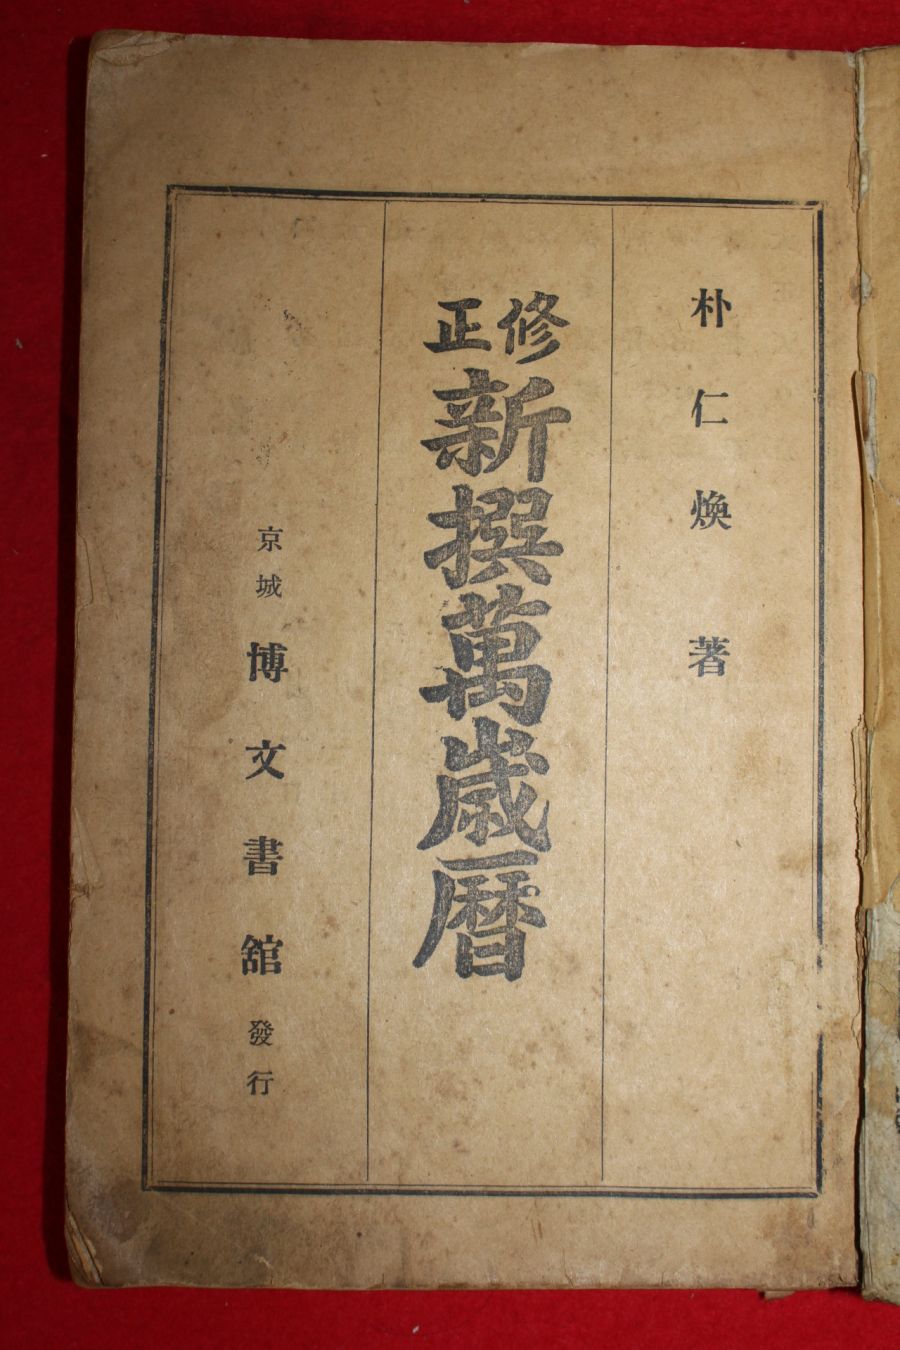 朴仁煥著
修正
新撰萬歲曆
京城 博文書舘 發行